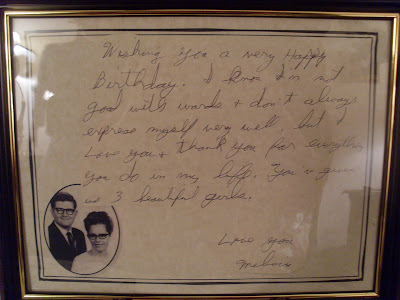 Wishing you a very Happy
Birthday. I know I'm not
good with words & don't always
express myself very well, but I
Love you & thank you for everything
you do in my life. You've given
us 3 beautiful girls.
Love you